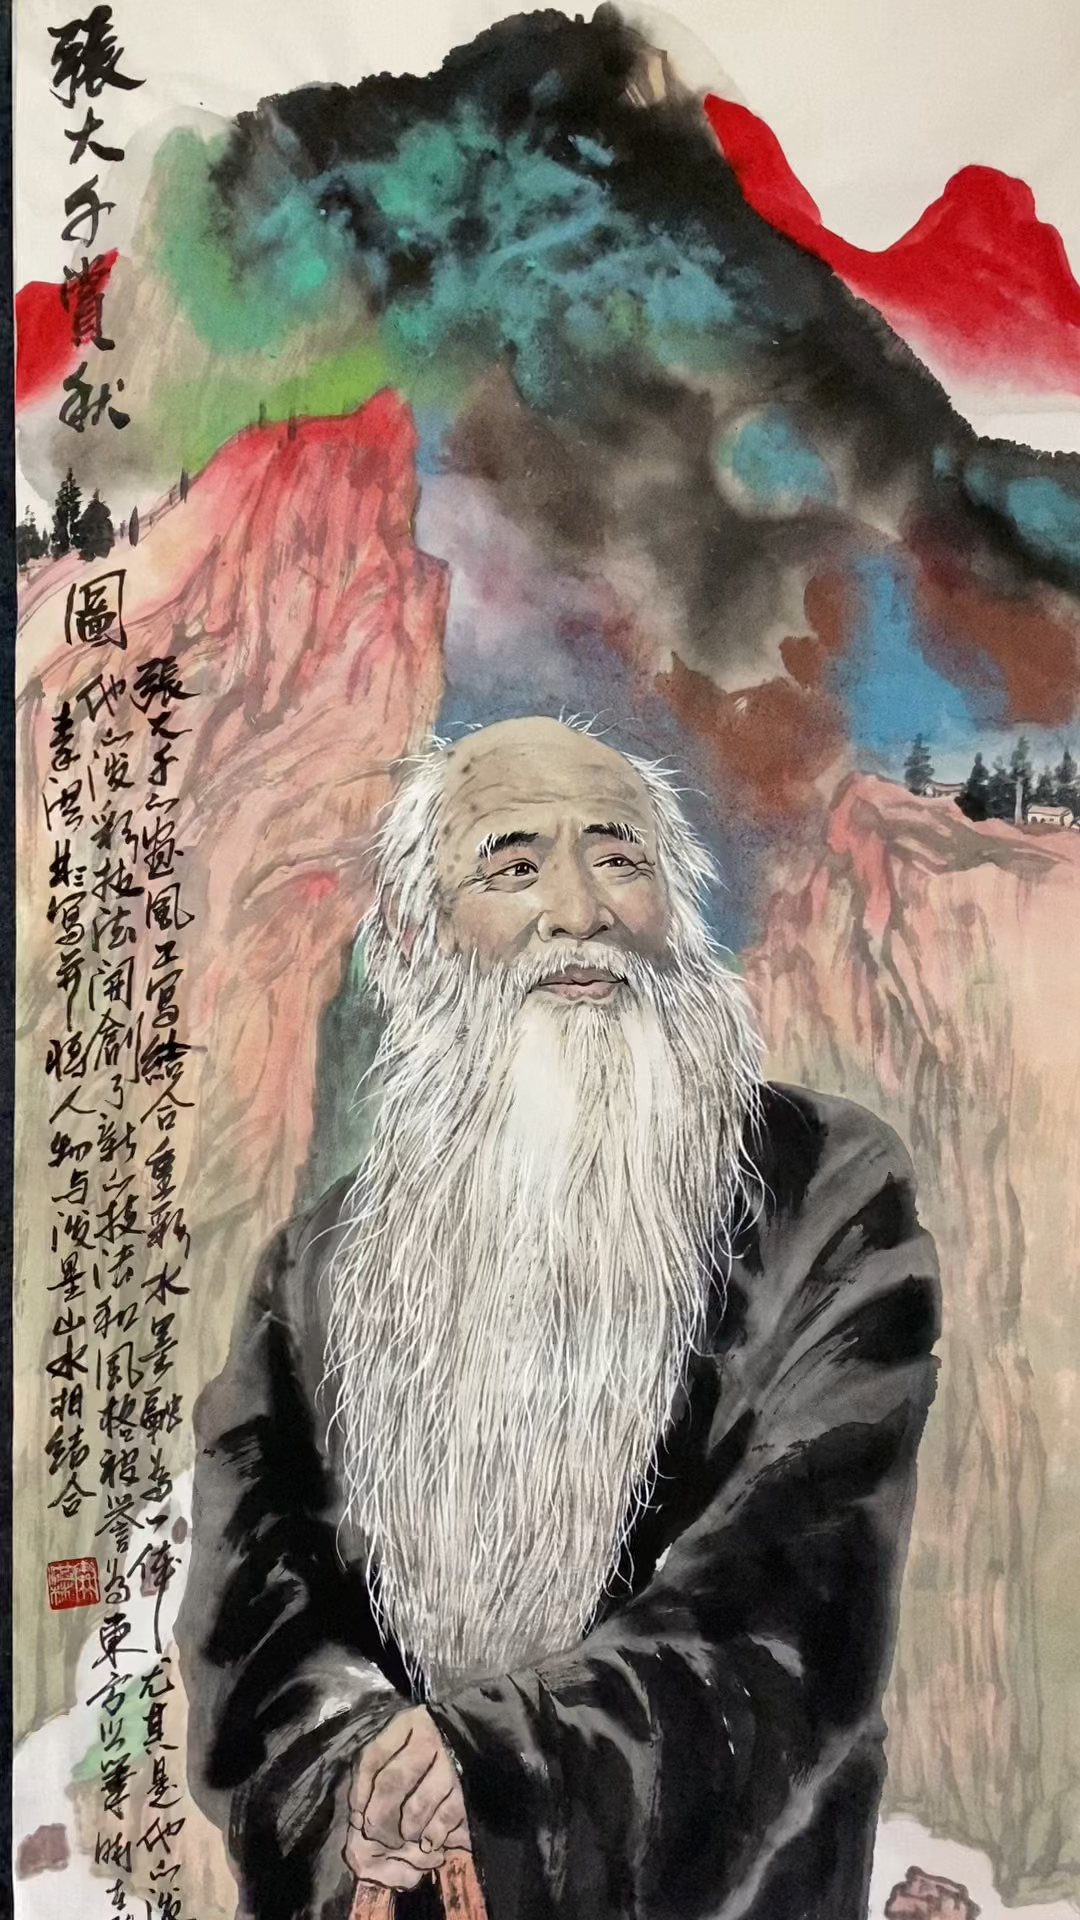 張大千賞秋圖
張大千的畫風工寫結合重彩水墨融為一体尤其是他的潑
他的潑彩技法開創了新的技法和風格被譽為東方之筆時在
寫並將人物与潑墨山水相結合